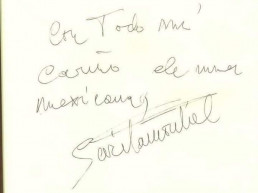 Con Todo mi
Cariño de una
mexicana
Sarita Montiel